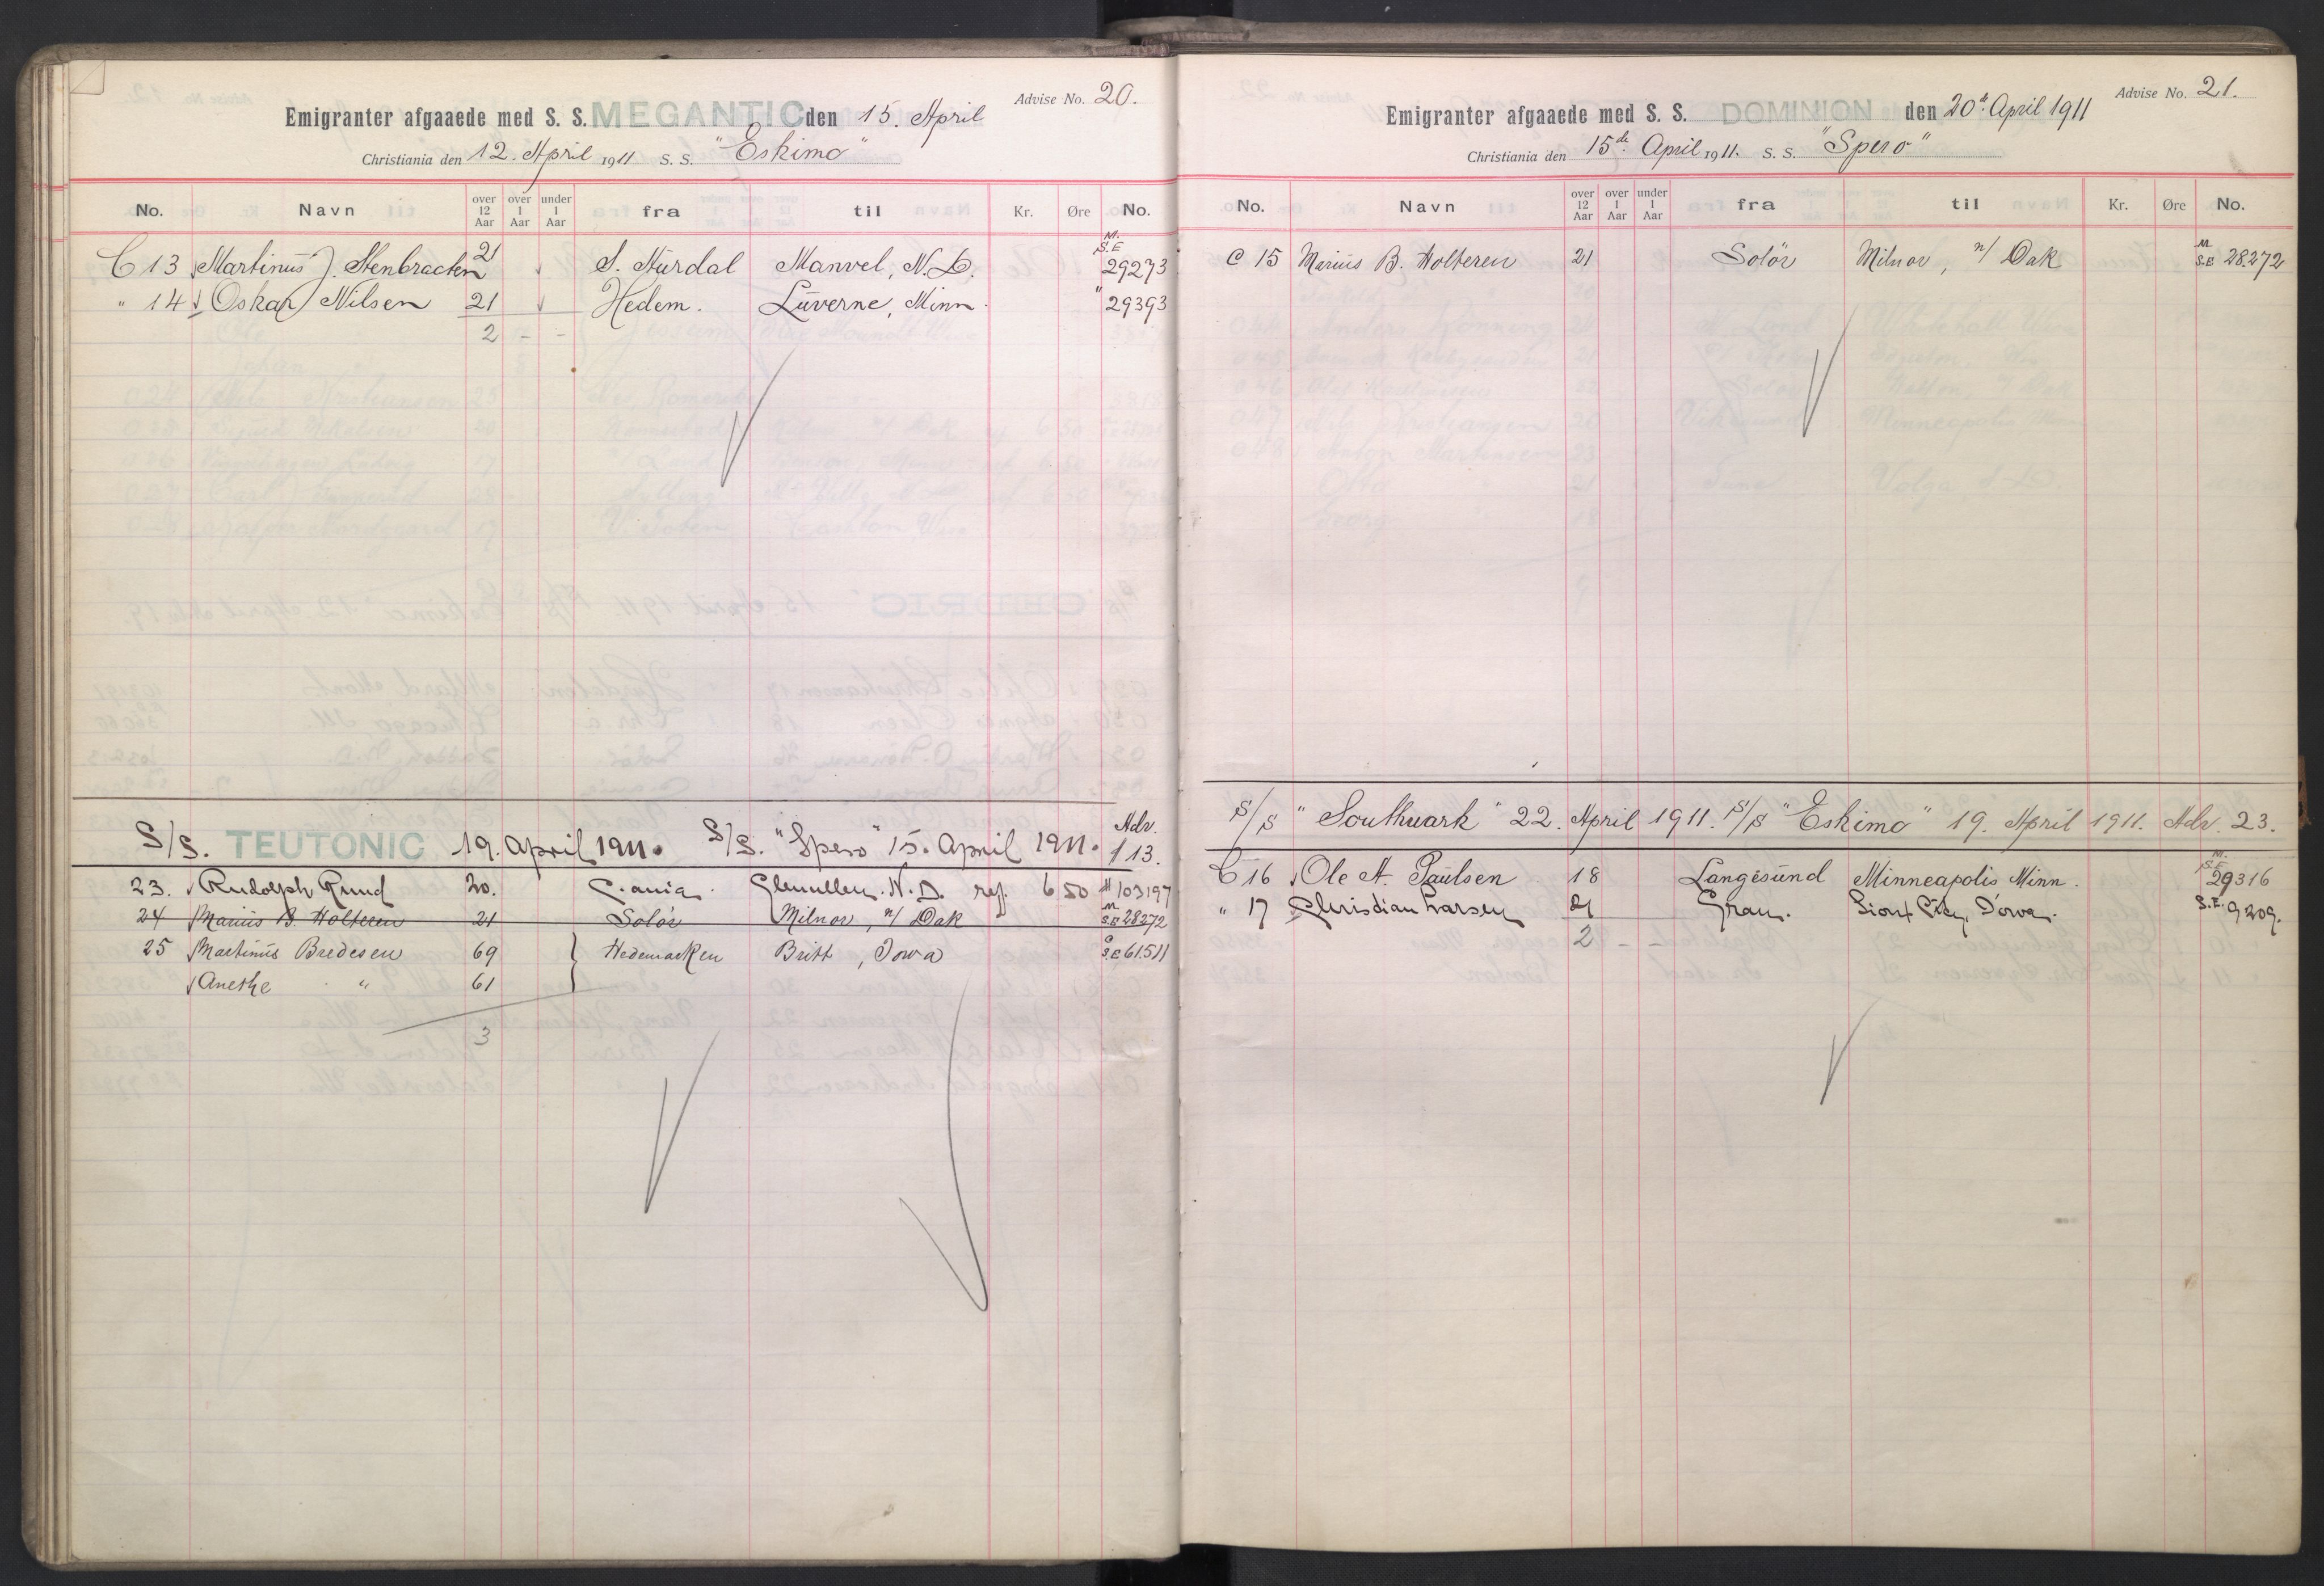 Advise No. 20.
Emigranter afgaaede med S. S. MEGANTIC den 15. April
Christiania den 12. April 1911 S. S. "Eskimo"
No. Navn over 12 Aar over 1 Aar under 1 Aar fra til Kr. Øre No.
C 13 Martinus J. Stenbracten 21 S. Hurdal Manvel, N. D. M. S.E 29273
" 14 Oskar Nilsen 21 Hedem. Luverne, Minn. " 29393
2 - -
S/S. TEUTONIC 19. April 1911. S/S. "Spero" 15. April 1911. Adv. 113.
23. Rudolph Ruud 20. C.ania. N. D. ref. 6 50 103197
24 Marius B. Holteren 21 Solör Milnor, n/ Dak M S.E 28272
25 Martinus Bredesen 69 Hedemarken Britt, Iowa S.E 61511
Anethe " 61
3
Advise No. 21.
Emigranter afgaaede med S. S. DOMINION den 20de April 1911
Christiania den 15de April 1911. S. S. "Spero"
No. Navn over 12 Aar over 1 Aar under 1 Aar fra til Kr. Øre No.
C 15 Marius B. Holteren 21 Solör Milnor, n/ Dak M S.E 28272
S/S "Southwark" 22. April 1911. S/S "Eskimo" 19. April 1911. Adv. 23.
C 16 Ole A. Paulsen 18 Langesund Minneapolis Minn. M. S.E. 29316
" 17 Christian Larsen 21 Gran. Sioux City, Iowa. S.E. 9209.
2 - -